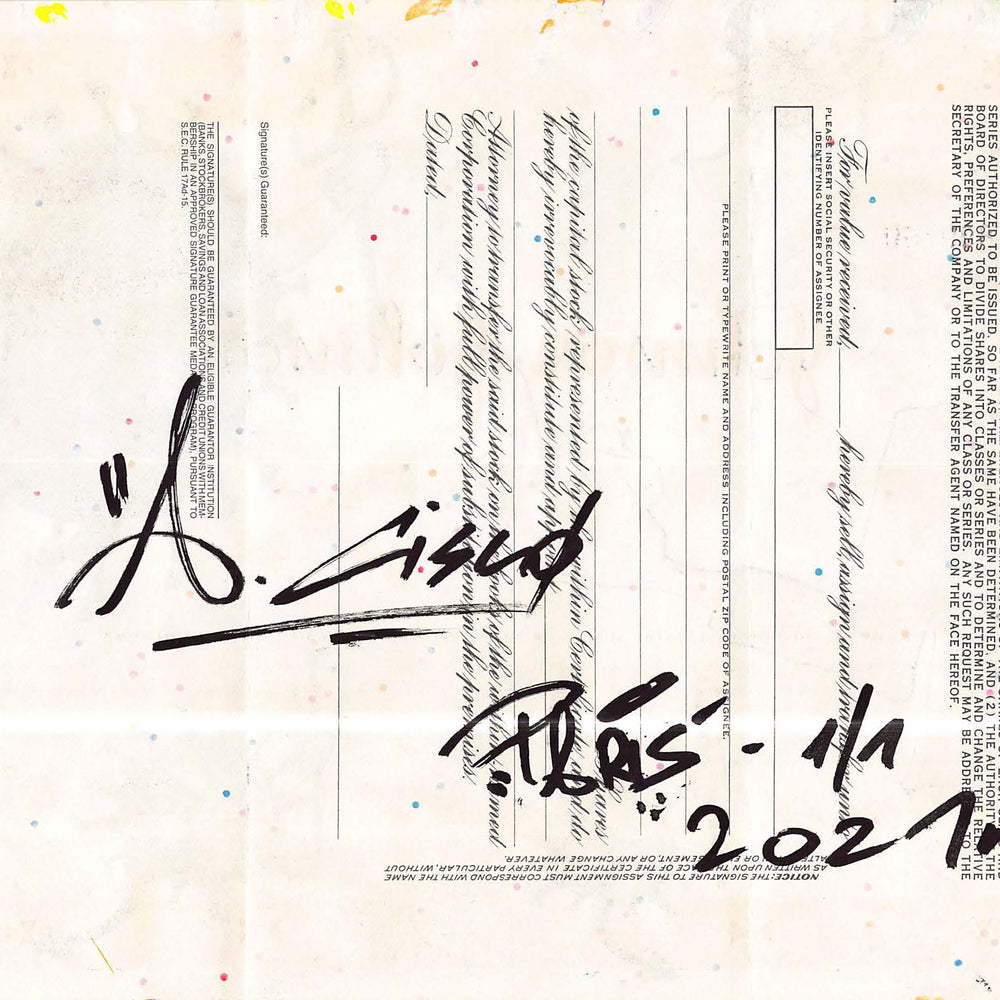 SERIES AUTHORIZED TO BE ISSUED, SO FAR AS THE SAME HAVE BEEN DETERMINED, AND (2) THE AUTHORITY THE
BOARD OF DIRECTORS TO DIVIDE SHARES INTO CLASSES OR SERIES AND TO DETERMINE AND CHANGE THE RELATIVE
RIGHTS, PREFERENCES AND LIMITATIONS OF ANY CLASS OR SERIES. ANY SUCH REQUEST MAY BE ADDRE TO THE
SECRETARY OF THE COMPANY OR TO THE TRANSFER AGENT NAMED ON THE FACE HEREOF.
For value received, hereby sell, assign and transfer unto
PLEASE INSERT SOCIAL SECURITY OR OTHER
IDENTIFYING NUMBER OF ASSIGNEE
PLEASE PRINT OR TYPEWRITE NAME AND ADDRESS INCLUDING POSTAL ZIP CODE OF ASSIGNEE.
of the capital stock represented by the within Certificate, and do
hereby irrevocably constitute and appoint
Attorney to transfer the said stock on the books of the within named
Corporation with full power of substitution in the premises.
Dated,
Signature(s) Guaranteed:
THE SIGNATURE(S) SHOULD BE GUARANTEED BY AN ELIGIBLE GUARANTOR INSTITUTION
(BANKS, STOCKBROKERS, SAVINGS AND LOAN ASSOCIATIONS AND CREDIT UNIONS WITH MEM-
BERSHIP IN AN APPROVED SIGNATURE GUARANTEE MEDALLION PROGRAM), PURSUANT TO
S.E.C. RULE 17Ad-15.
NOTICE: THE SIGNATURE TO THIS ASSIGNMENT MUST CORRESPOND WITH THE NAME
AS WRITTEN UPON THE FACE OF THE CERTIFICATE IN EVERY PARTICULAR, WITHOUT
ALTERATION OR ENLARGEMENT, OR ANY CHANGE WHATEVER.
"A. Cisco
PARIS - 1/1
2021